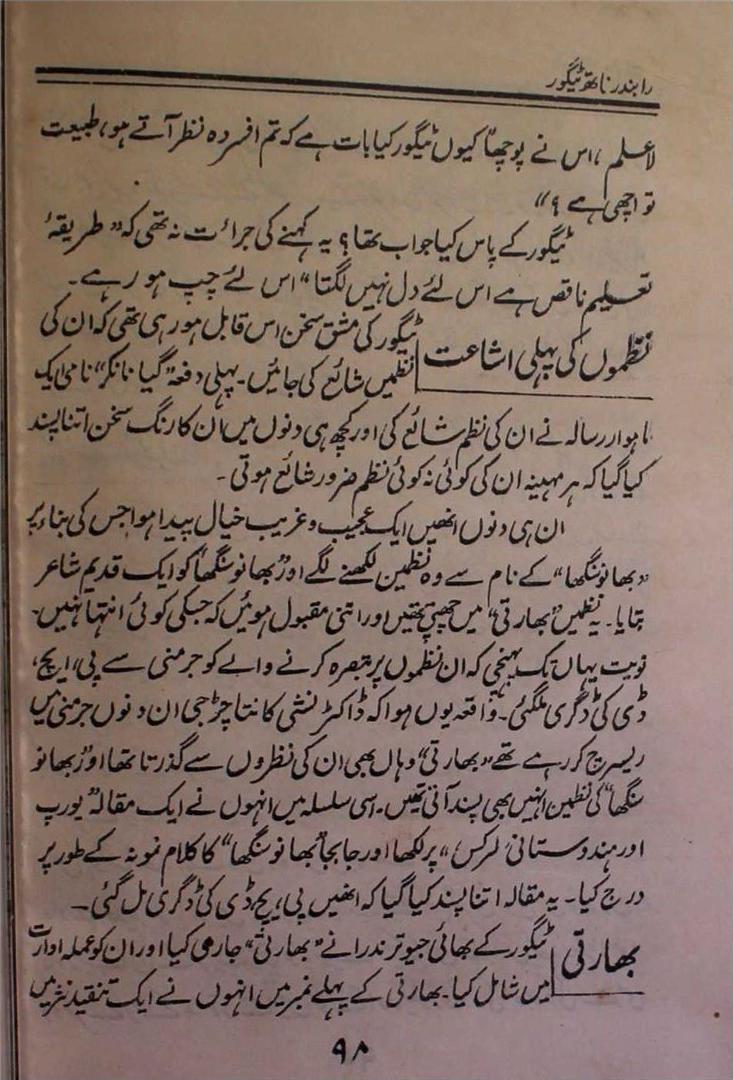 رابندر ناتھ ٹیگور
لاعلم، اس نے پوچھا "کیوں ٹیگور کیا بات ہے کہ تم افسردہ نظر آتے ہو، طبیعت
تو اچھی ہے؟"
ٹیگور کے پاس کیا جواب تھا؟ یہ کہنے کی جرائت نہ تھی کہ "طریقۂ
تعلیم ناقص ہے اس لئے دل نہیں لگتا" اس لئے چپ ہو رہے۔
نظموں کی پہلی اشاعت
ٹیگور کی مشق سخن اس قابل ہو رہی تھی کہ ان کی
نظمیں شائع کی جائیں۔ پہلی دفعہ "گیا نانکر" نامی ایک
ماہوار رسالہ نے ان کی نظم شائع کی اور کچھ ہی دنوں میں ان کا رنگ سخن اتنا پسند
کیا گیا کہ ہر مہینہ ان کی کوئی نہ کوئی نظم ضرور شائع ہوتی۔
ان ہی دنوں انھیں ایک عجیب و غریب خیال پیدا ہوا جس کی بناء پر
"بھانو سنگھا" کے نام سے وہ نظمین لکھنے لگے اور "بھانو سنگھا" کو ایک قدیم شاعر
بتایا۔ یہ نظمیں "بھارتی" میں چھپی تھیں اور اتنی مقبول ہوئیں کہ جسکی کوئی انتہا نہیں۔
نوبت یہاں تک پہنچی کہ ان نظموں پر تبصرہ کرنے والے کو جرمنی سے پی، ایچ،
ڈی کی ڈگری ملگئی۔ واقعہ یوں ہوا کہ ڈاکٹر نشی کانتا چڑجی ان دنوں جرمنی میں
ریسرچ کر رہے تھے "بھارتی" وہاں بھی ان کی نظروں سے گذرتا تھا اور "بھانو
سنگھا" کی نظمین انہیں بھی پسند آتی تھیں۔ اسی سلسلہ میں انہوں نے ایک مقالہ "یورپ
اور ہندوستانی لرکس" پر لکھا اور جابجا "بھانو سنگھا" کا کلام نمونہ کے طور پر
درج کیا۔ یہ مقالہ اتنا پسند کیا گیا کہ انھیں پی، یچ، ڈی کی ڈگری مل گئی۔
بھارتی
ٹیگور کے بھائی جیوتر ندرا نے "بھارتی" جارمی کیا اور ان کو عملہ ادارت
میں شامل کیا۔ بھارتی کے پہلے نمبر میں انہوں نے ایک تنقید نثر میں
۹۸